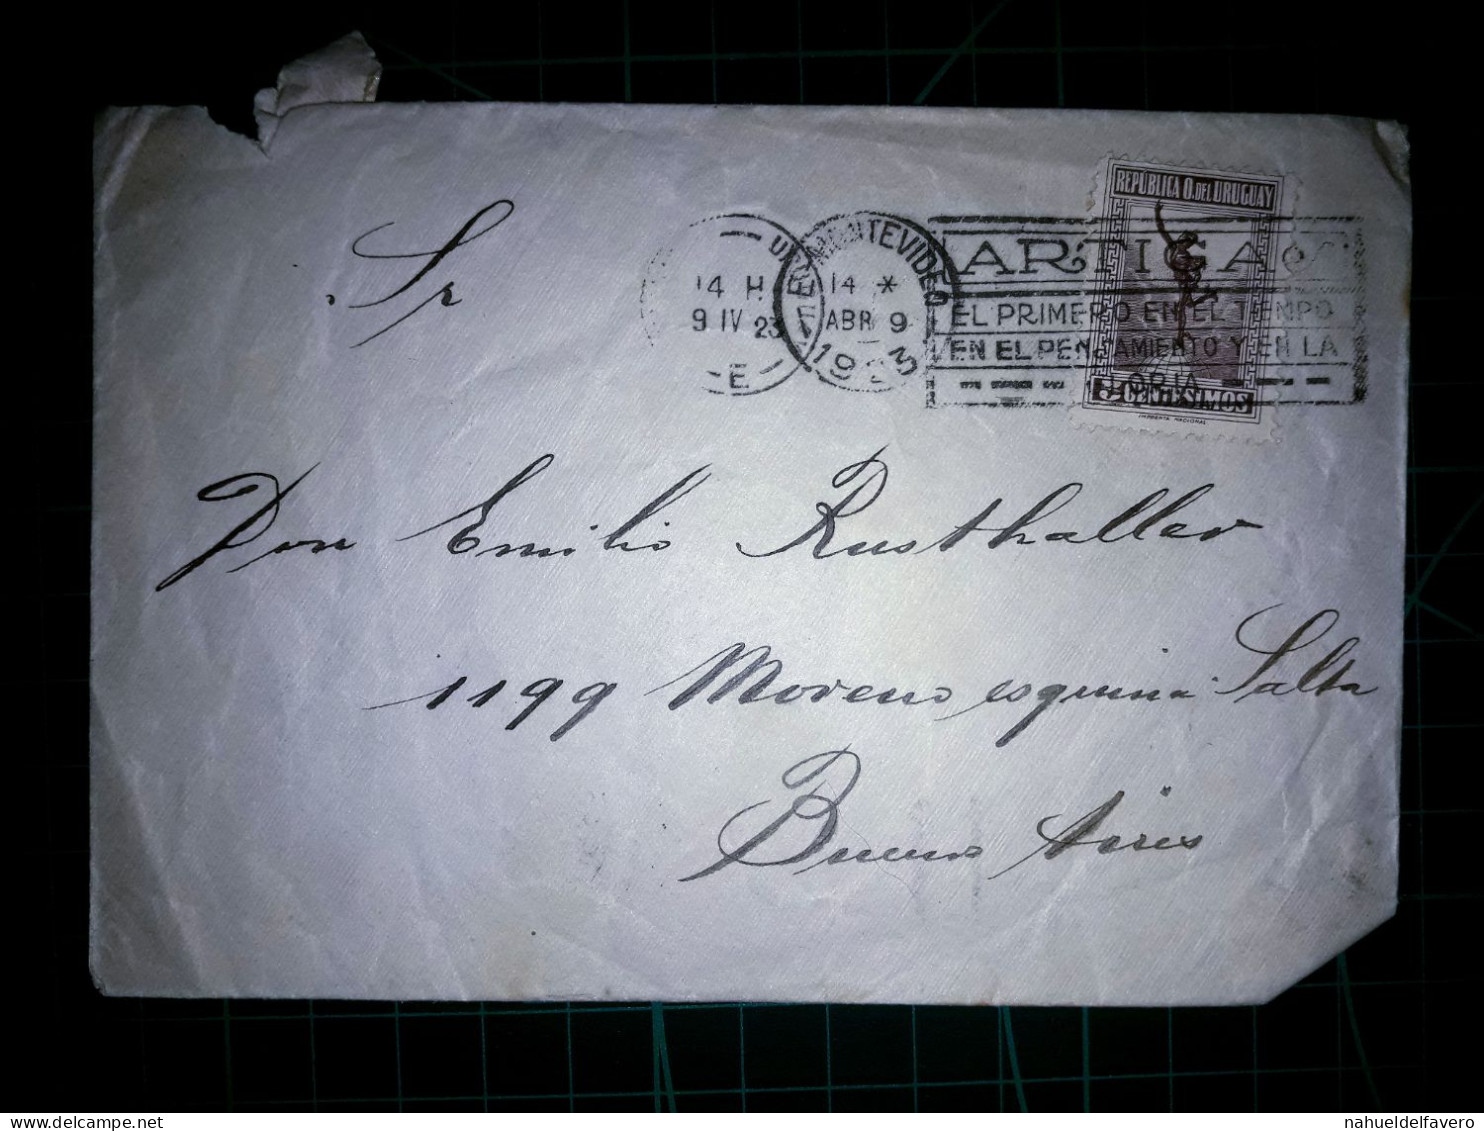 REPUBLICA O. DEL URUGUAY
MONTEVIDEO
14 H
9 IV 23
E
14 *
ABR 9
1923
ARTIGAS
EL PRIMERO EN EL TIEMPO
EN EL PENSAMIENTO Y EN LA
GLORIA
5 CENTESIMOS
IMPRENTA NACIONAL
Sr
Don Emilio Rusthaller
1199 Moreno esquina Salta
Buenos Aires
nahueldelfavero